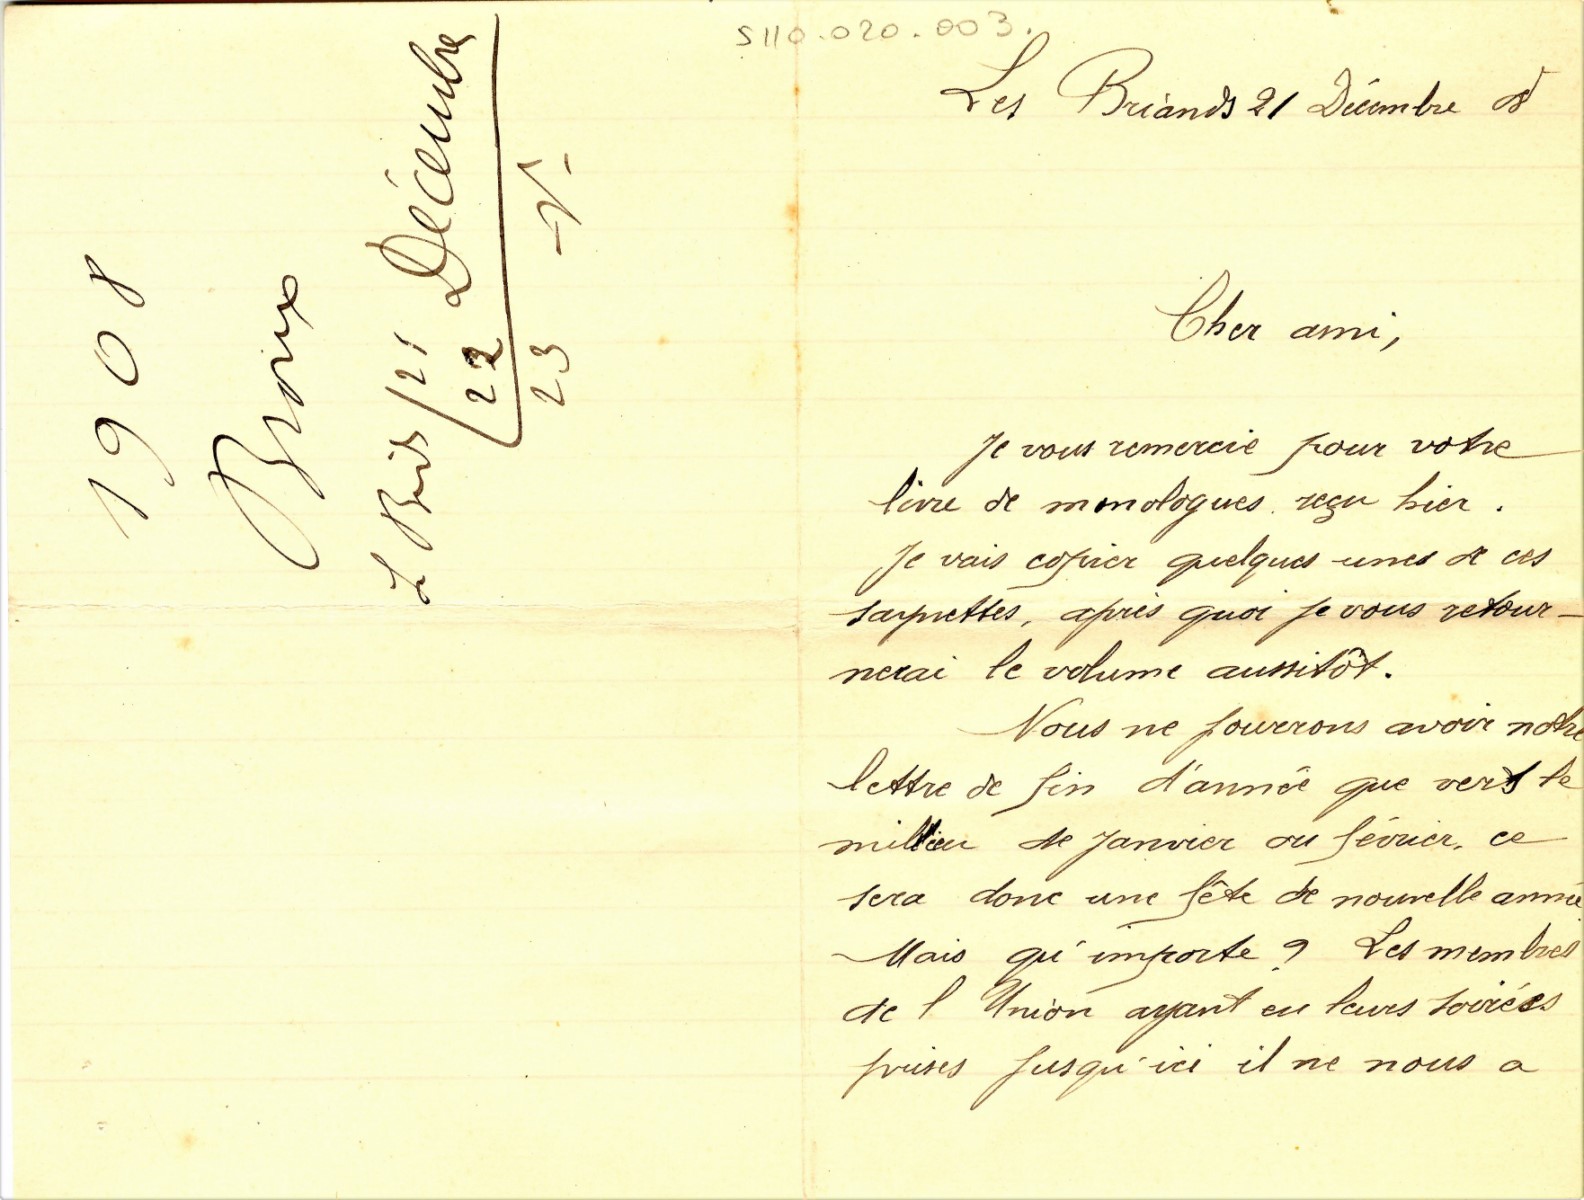 S110.020.003.
1908
Broux
21 Décembre
22
23
Les Briands 21 Décembre 08
Cher ami,
Je vous remercie pour votre
livre de monologues reçu hier.
Je vais copier quelques unes de ces
saynettes, après quoi je vous retour-
nerai le volume aussitôt.
Nous ne pourrons avoir notre
lettre de fin d'année que vers le
milieu de Janvier ou février, ce
sera donc une fête de nouvelle année.
Mais qu'importe ? Les membres
de l'Union ayant eu leurs soirées
prises jusqu'ici il ne nous a